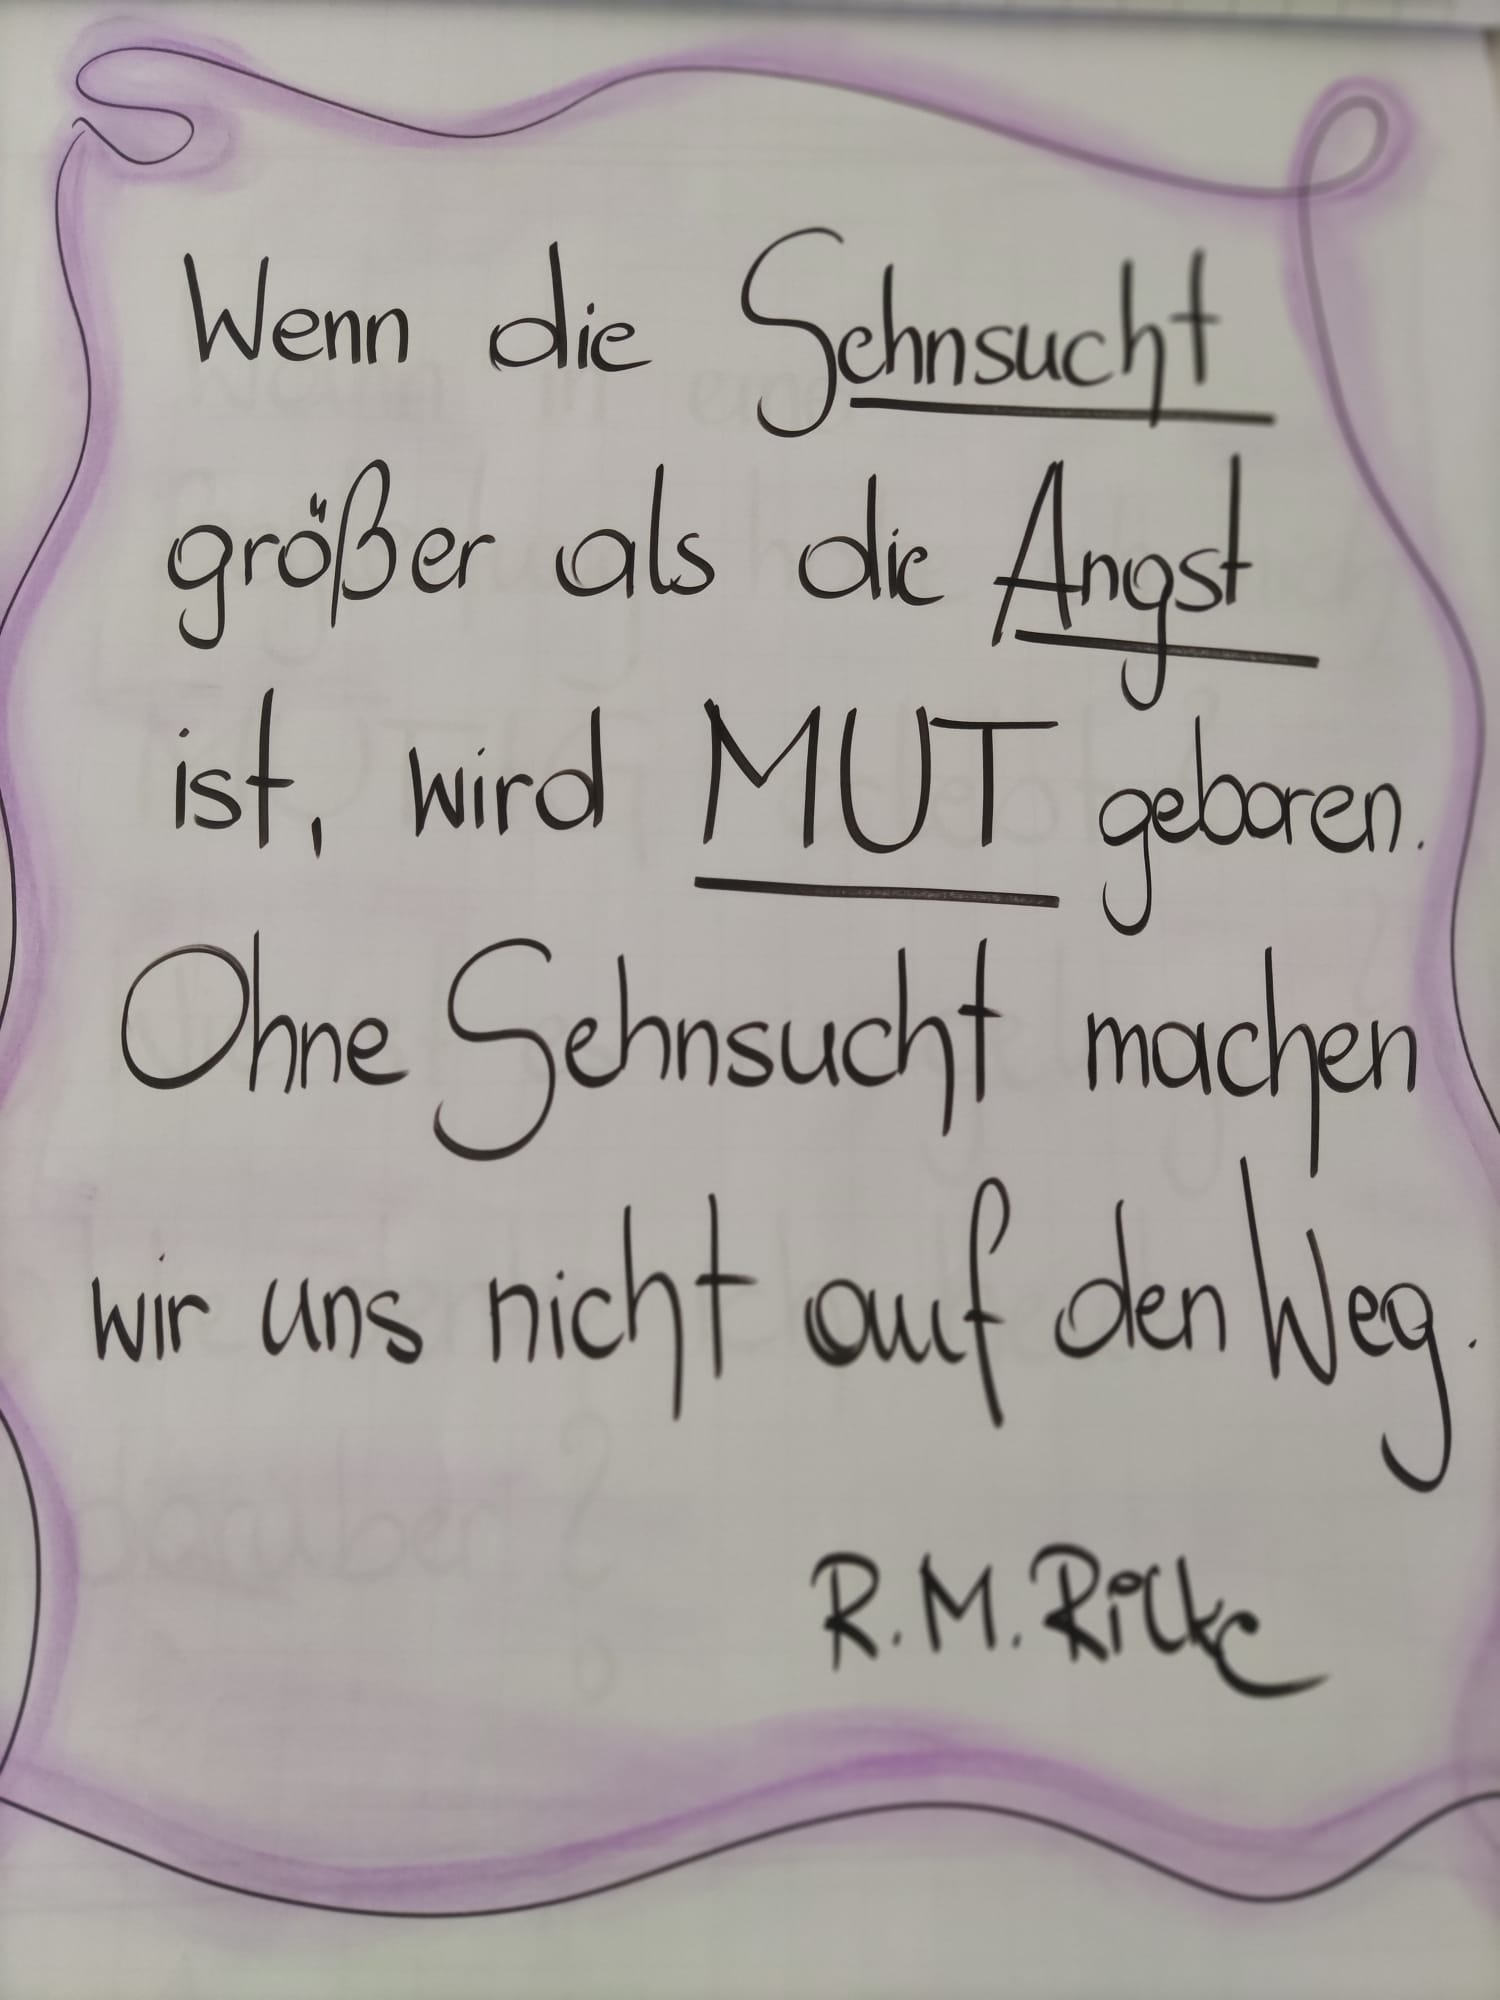 Wenn die Sehnsucht
größer als die Angst
ist, wird MUT geboren.
Ohne Sehnsucht machen
wir uns nicht auf den Weg.
R.M. Rilke
darüber?